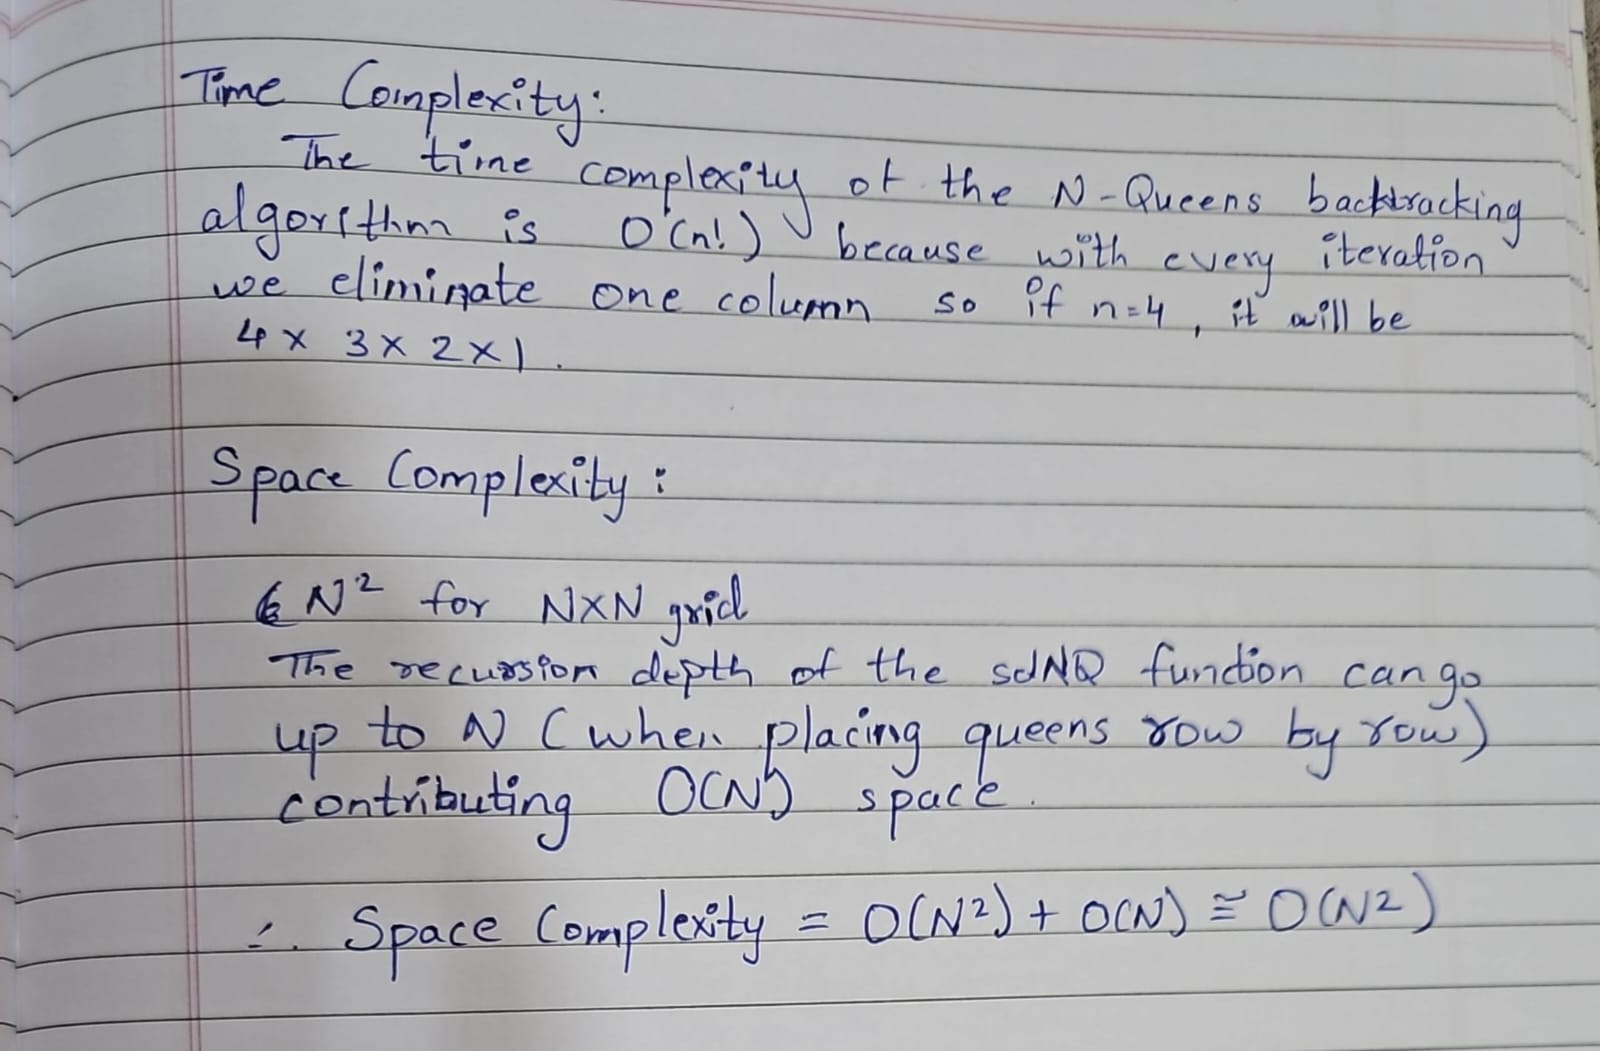 Time Complexity:
The time complexity of the N-Queens backtracking
algorithm is O(n!) because with every iteration
we eliminate one column so if n=4, it will be
4 x 3 x 2 x 1.
Space Complexity:
N² for NXN grid
The recursion depth of the solNQ function can go
up to N (when placing queens row by row)
contributing O(N) space.
∴ Space Complexity = O(N²) + O(N) ≅ O(N²)